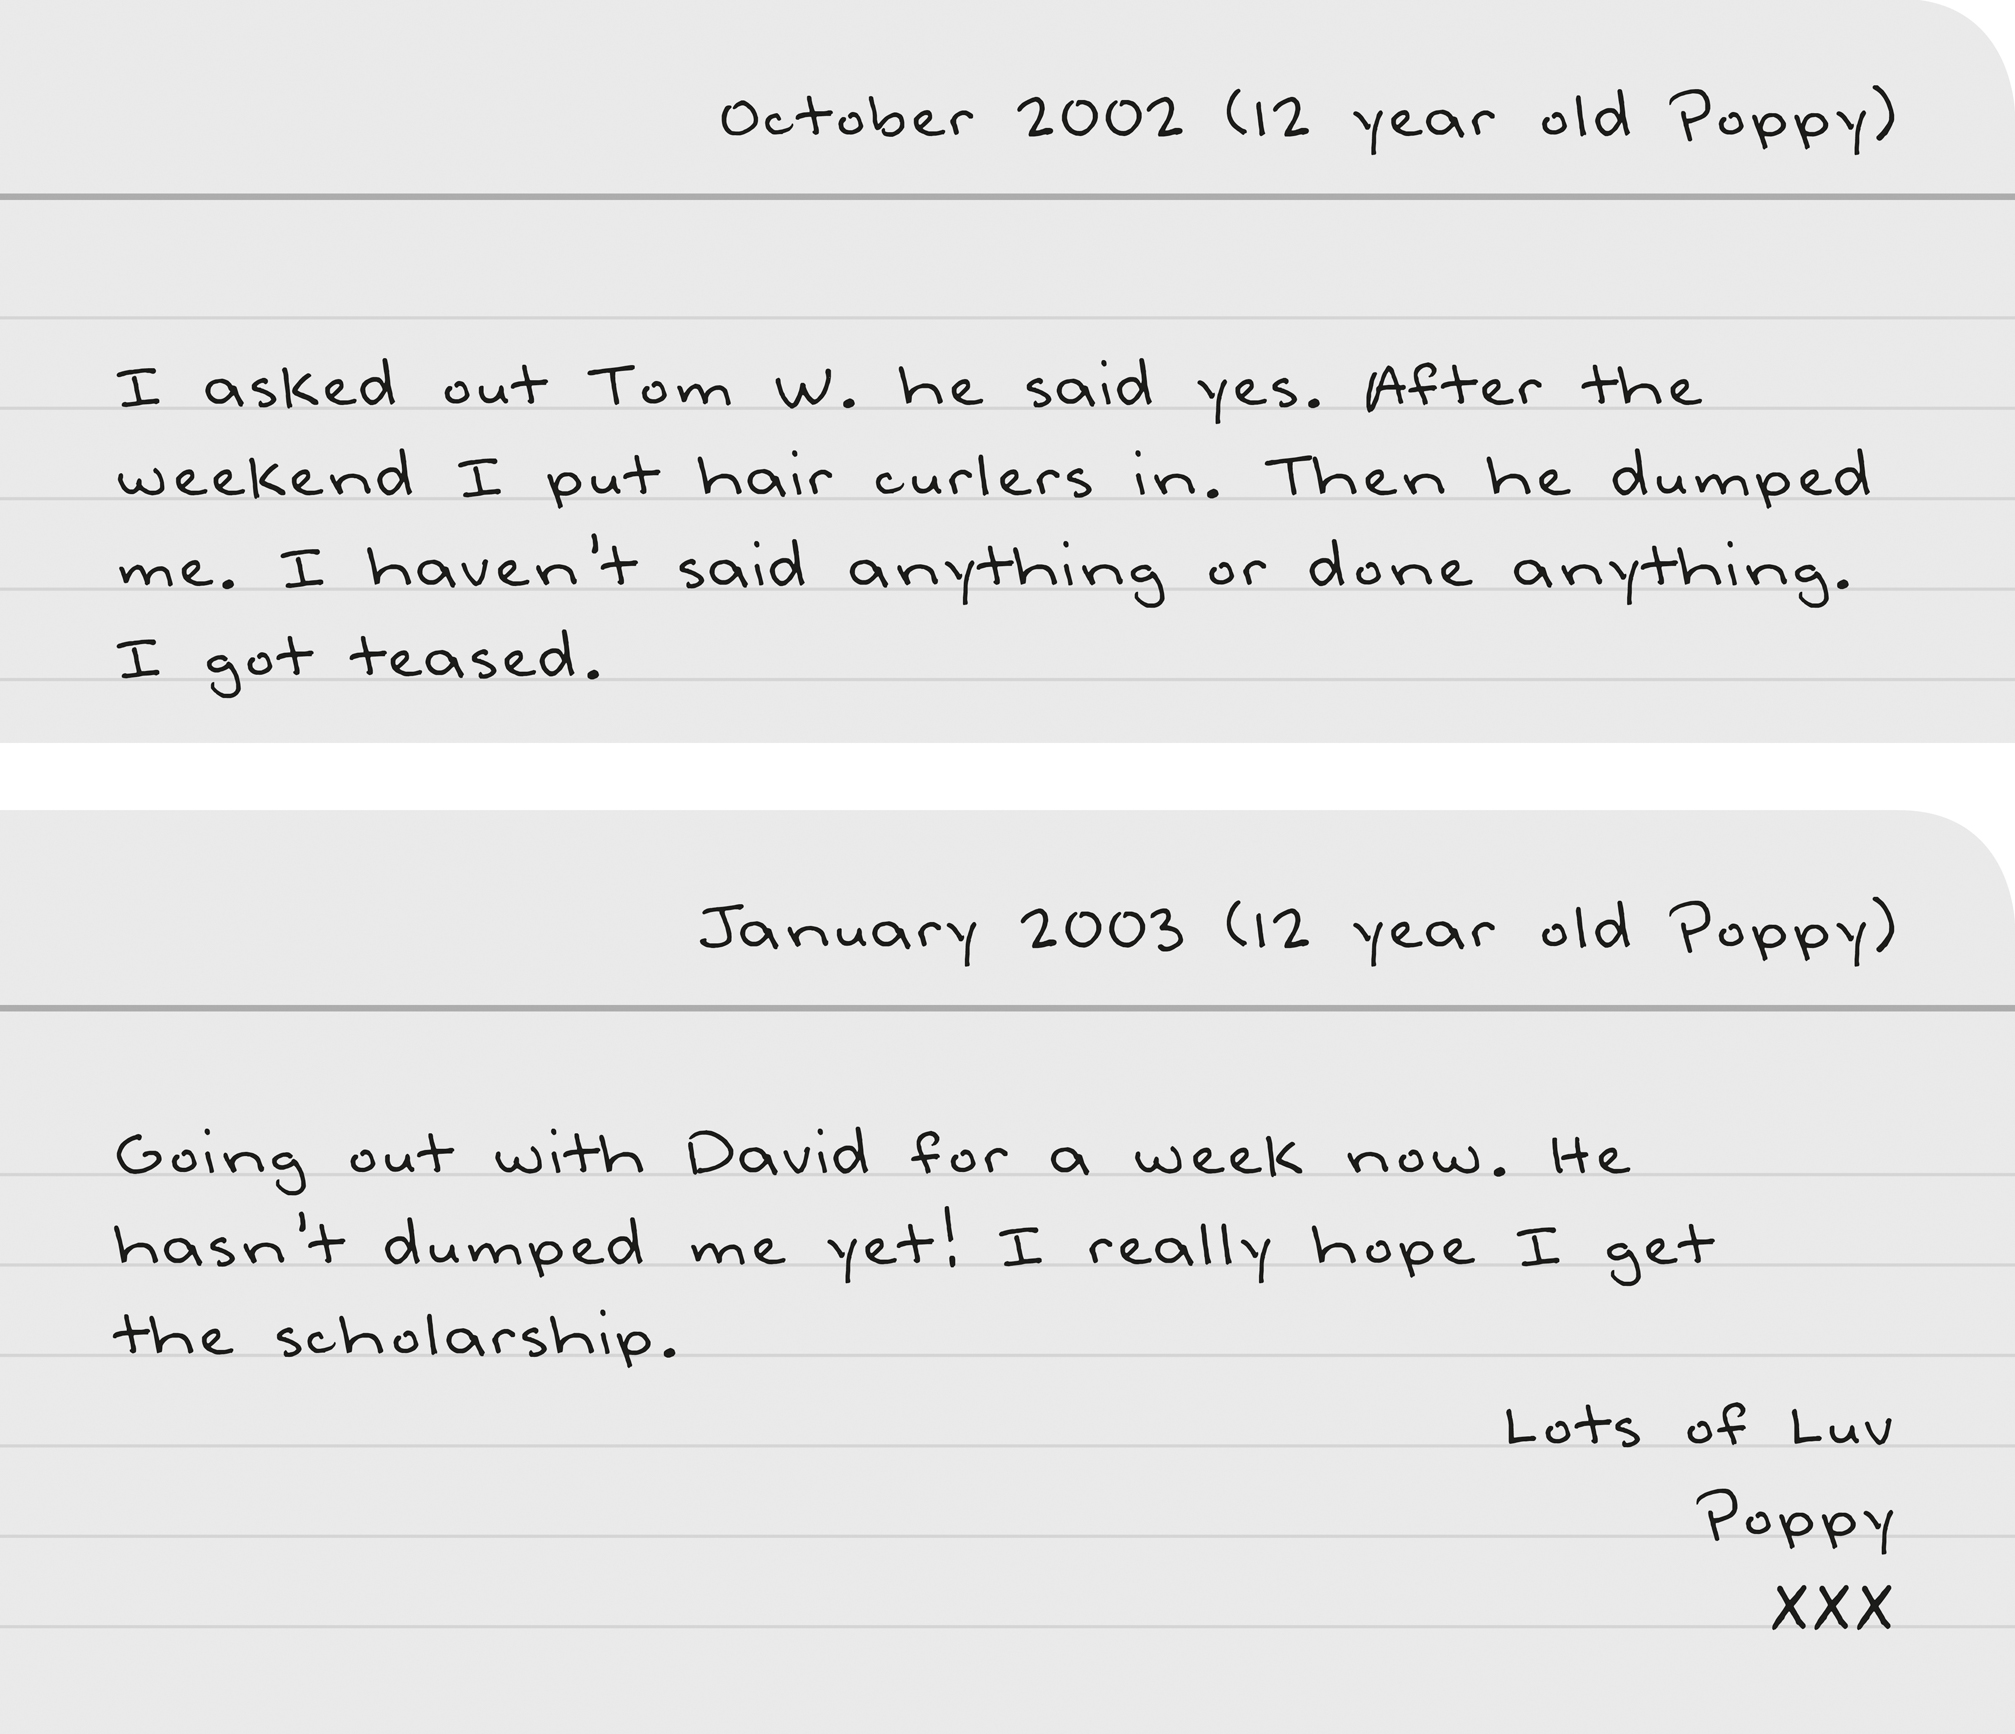 October 2002 (12 year old Poppy)
I asked out Tom W. he said yes. After the
weekend I put hair curlers in. Then he dumped
me. I haven't said anything or done anything.
I got teased.
January 2003 (12 year old Poppy)
Going out with David for a week now. He
hasn't dumped me yet! I really hope I get
the scholarship.
Lots of Luv
Poppy
XXX